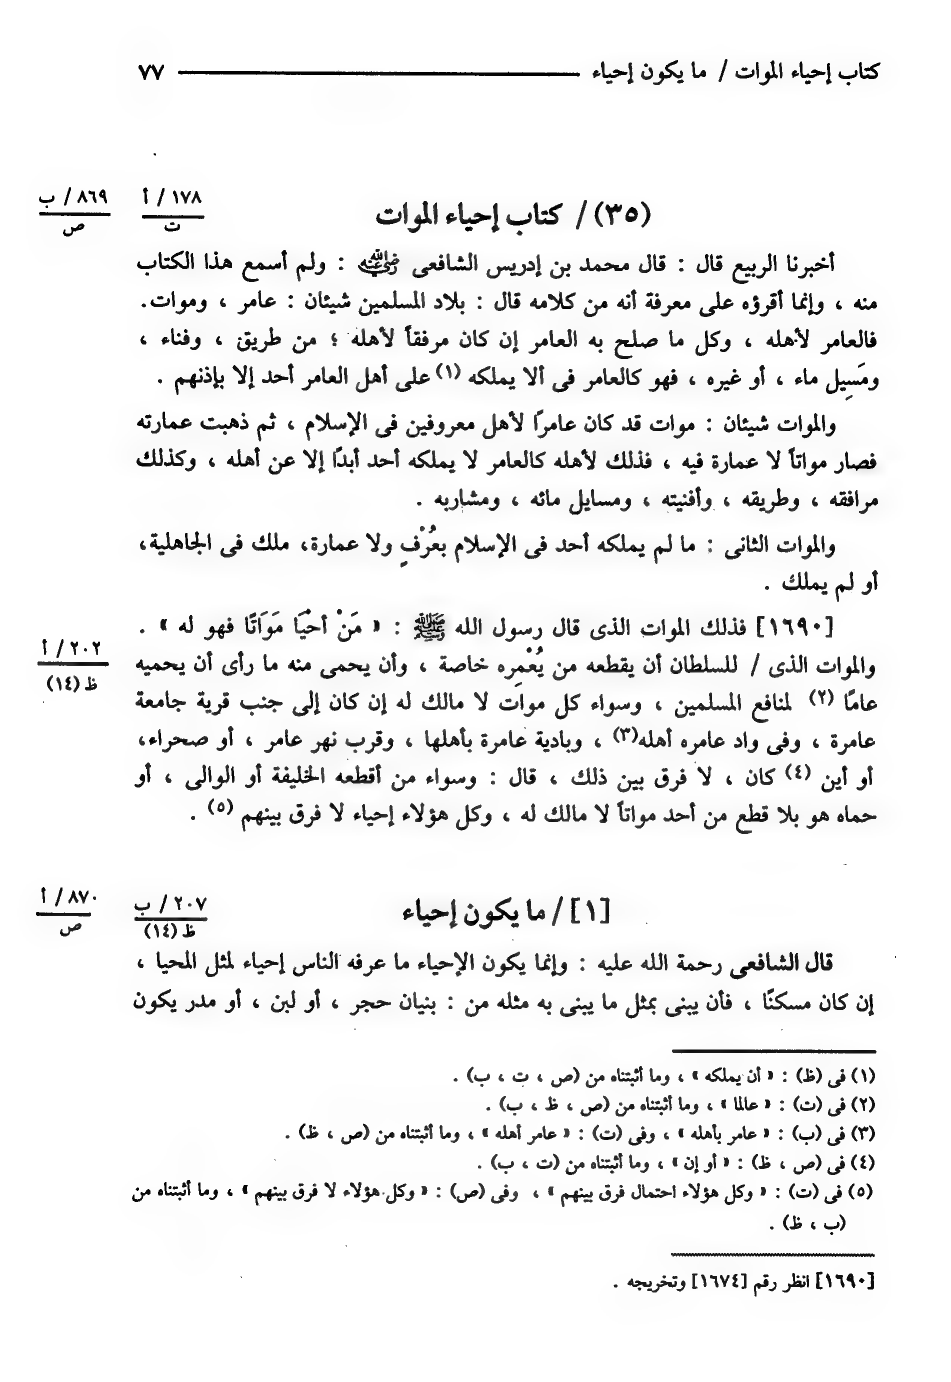 كتاب إحياء الموات / ما يكون إحياء ٧٧
(٣٥) / كتاب إحياء الموات
١٧٨ / أ
ت
٨٦٩ / ب
ص
أخبرنا الربيع قال : قال محمد بن إدريس الشافعى رضي الله عنه : ولم أسمع هذا الكتاب
منه ، وإنما أقرؤه على معرفة أنه من كلامه قال : بلاد المسلمين شيئان : عامر ، وموات.
فالعامر لأهله ، وكل ما صلح به العامر إن كان مرفقاً لأهله ؛ من طريق ، وفناء ،
ومَسِيل ماء ، أو غيره ، فهو كالعامر فى ألا يملكه (١) على أهل العامر أحد إلا بإذنهم .
والموات شيئان : موات قد كان عامرًا لأهل معروفين فى الإسلام ، ثم ذهبت عمارته
فصار مواتاً لا عمارة فيه ، فذلك لأهله كالعامر لا يملكه أحد أبدًا إلا عن أهله ، وكذلك
مرافقه ، وطريقه ، وأفنيته ، ومسايل مائه ، ومشاربه .
والموات الثانى : ما لم يملكه أحد فى الإسلام بعُرْفٍ ولا عمارة، ملك فى الجاهلية،
أو لم يملك .
[١٦٩٠] فذلك الموات الذى قال رسول الله ﷺ : « مَنْ أحْيَا مَوَاتًا فهو له » .
والموات الذى / للسلطان أن يقطعه من يُعْمِره خاصة ، وأن يحمى منه ما رأى أن يحميه
٢٠٢ / أ
ظ (١٤)
عامًا (٢) لمنافع المسلمين ، وسواء كل موات لا مالك له إن كان إلى جنب قرية جامعة
عامرة ، وفى واد عامره أهله(٣) ، وبادية عامرة بأهلها ، وقرب نهر عامر ، أو صحراء،
أو أين (٤) كان ، لا فرق بين ذلك ، قال : وسواء من أقطعه الخليفة أو الوالى ، أو
حماه هو بلا قطع من أحد مواتاً لا مالك له ، وكل هؤلاء إحياء لا فرق بينهم (٥) .
[١] / ما يكون إحياء
٢٠٧ / ب
ظ (١٤)
٨٧٠ / أ
ص
قال الشافعى رحمة الله عليه : وإنما يكون الإحياء ما عرفه الناس إحياء لمثل المحيا ،
إن كان مسكنًا ، فأن يبنى بمثل ما يبنى به مثله من : بنيان حجر ، أو لبن ، أو مدر يكون
(١) فى (ظ) : « أن يملكه » ، وما أثبتناه من (ص ، ت ، ب) .
(٢) فى (ت) : « عالما » ، وما أثبتناه من (ص ، ظ ، ب) .
(٣) فى (ب) : « عامر بأهله » ، وفى (ت) : « عامر أهله » ، وما أثبتناه من (ص ، ظ) .
(٤) فى (ص ، ظ) : « أو إن » ، وما أثبتناه من (ت ، ب) .
(٥) فى (ت) : « وكل هؤلاء احتمال فرق بينهم » ، وفى (ص) : « وكل هؤلاء لا فرق بينهم » ، وما أثبتناه من
(ب ، ظ) .
[١٦٩٠] انظر رقم [١٦٧٤] وتخريجه .